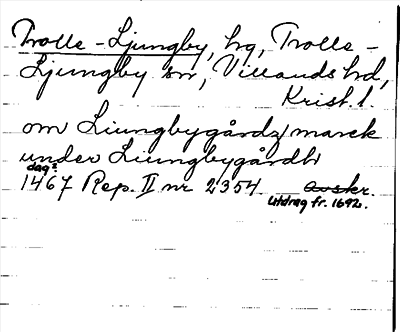 Trolle-Ljungby, hg, Trolle-
Ljungby sn, Villands hd,
Krist. l.
om Liungbygårdz marck
under Liungbygårdh
dag?
1467 Rep. II nr 2354 avskr.
utdrag fr. 1692.